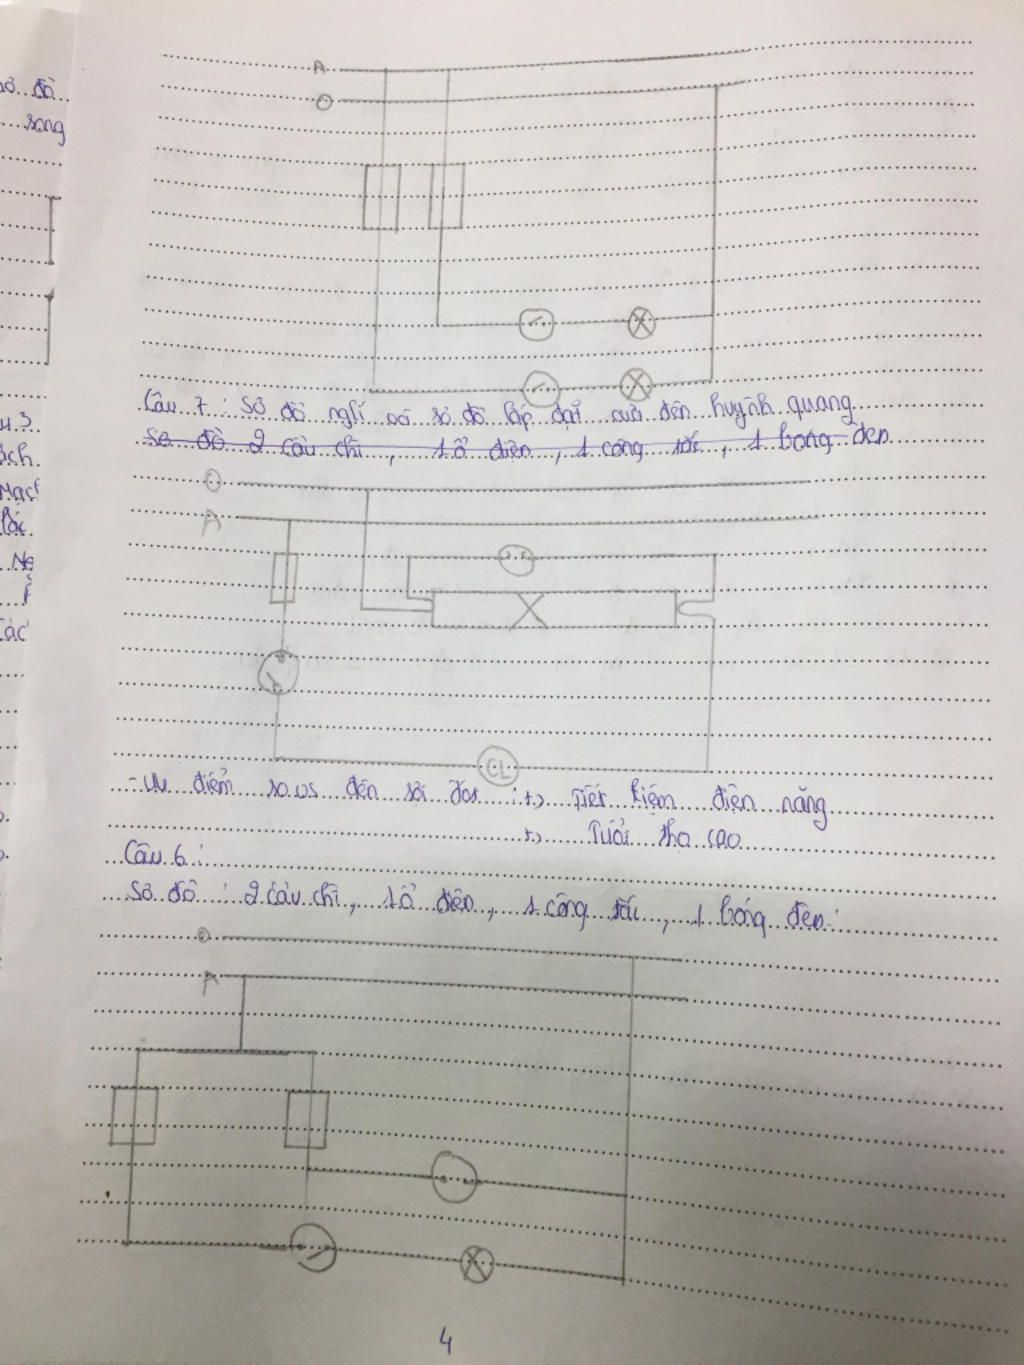 sơ đồ
song
A
O
Câu 7 : Sơ đồ nglí và sơ đồ lắp đặt của đèn huỳnh quang
Sơ đồ 2 cầu chì, 1 ổ điện, 1 công tắc, 1 bóng đèn
O
A
CL
- Ưu điểm so vs đèn sợi đốt : +) Tiết kiệm điện năng
+) Tuổi thọ cao
Câu 6 :
Sơ đồ : 2 cầu chì, 1 ổ điện, 1 công tắc, 1 bóng đèn :
O
A
4